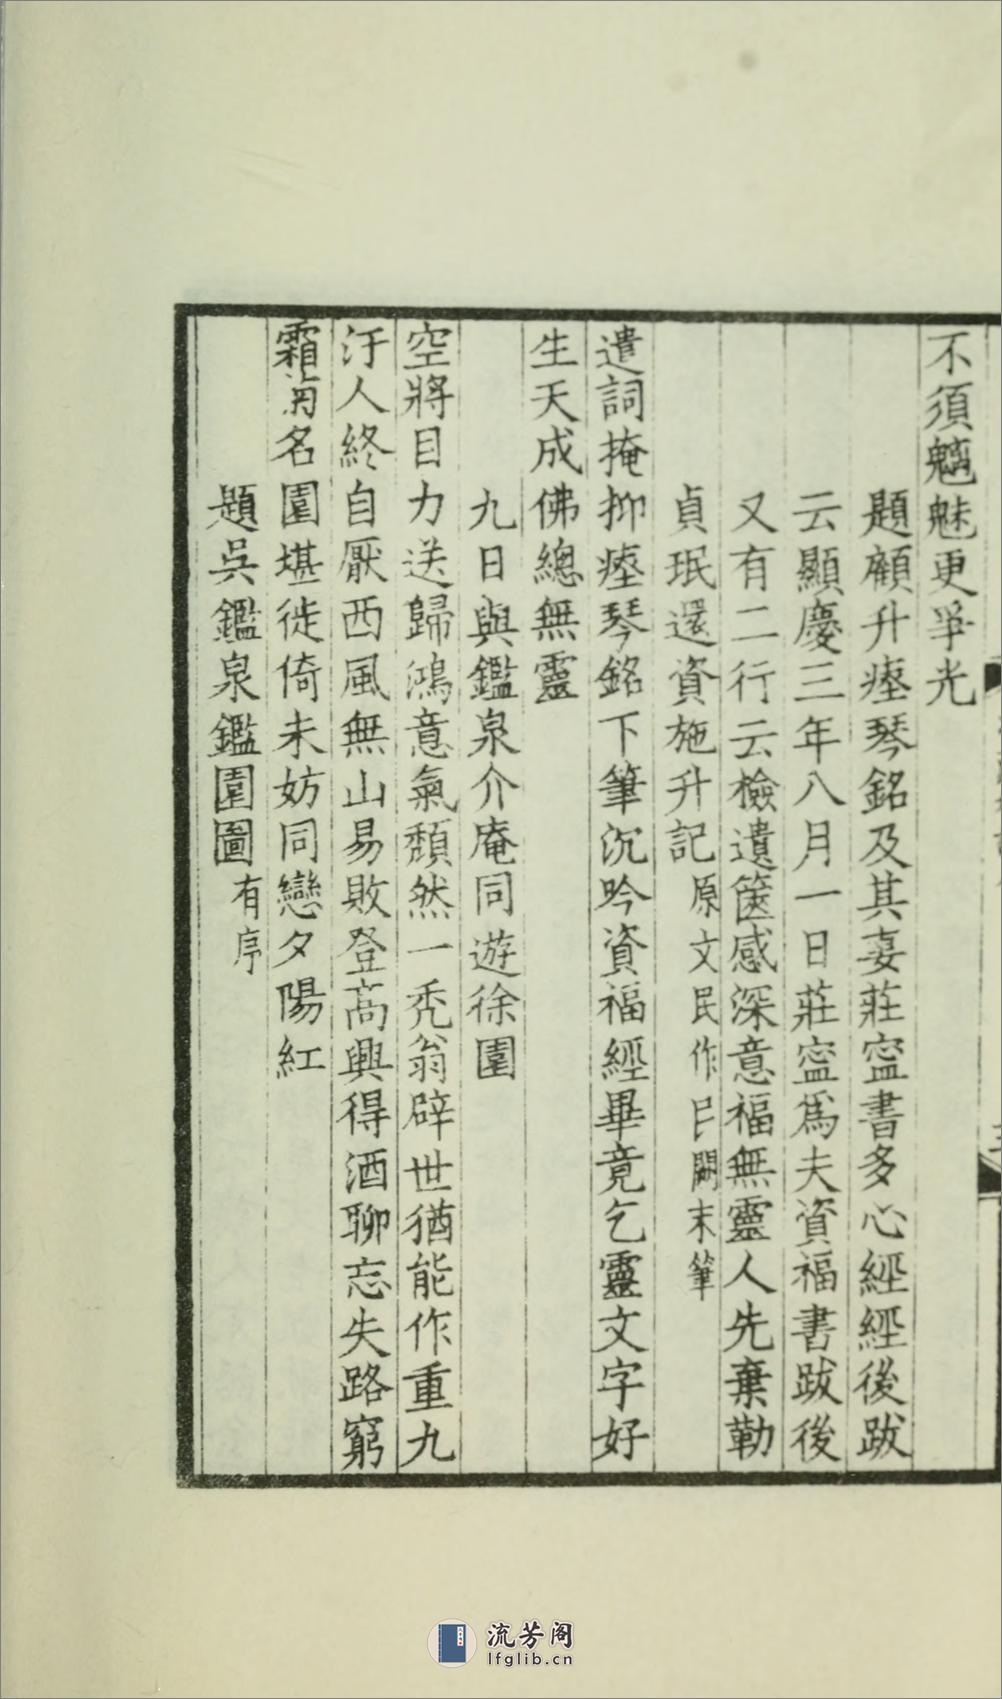 不須魑魅更爭光
題顧升瘞琴銘及其妻莊寍書多心經經後跋
云顯慶三年八月一日莊寍爲夫資福書跋後
又有二行云檢遺篋感深意福無靈人先棄勒
貞珉還資施升記原文民作𫞖闕末筆
遣詞掩抑瘞琴銘下筆沉吟資福經畢竟乞靈文字好
生天成佛總無靈
九日與鑑泉介庵同遊徐園
空將目力送歸鴻意氣頽然一禿翁辟世猶能作重九
汙人終自厭西風無山易敗登高興得酒聊忘失路窮
霜菊名園堪徙倚未妨同戀夕陽紅
題吳鑑泉鑑園圖有序
流芳阁
lfglib.cn